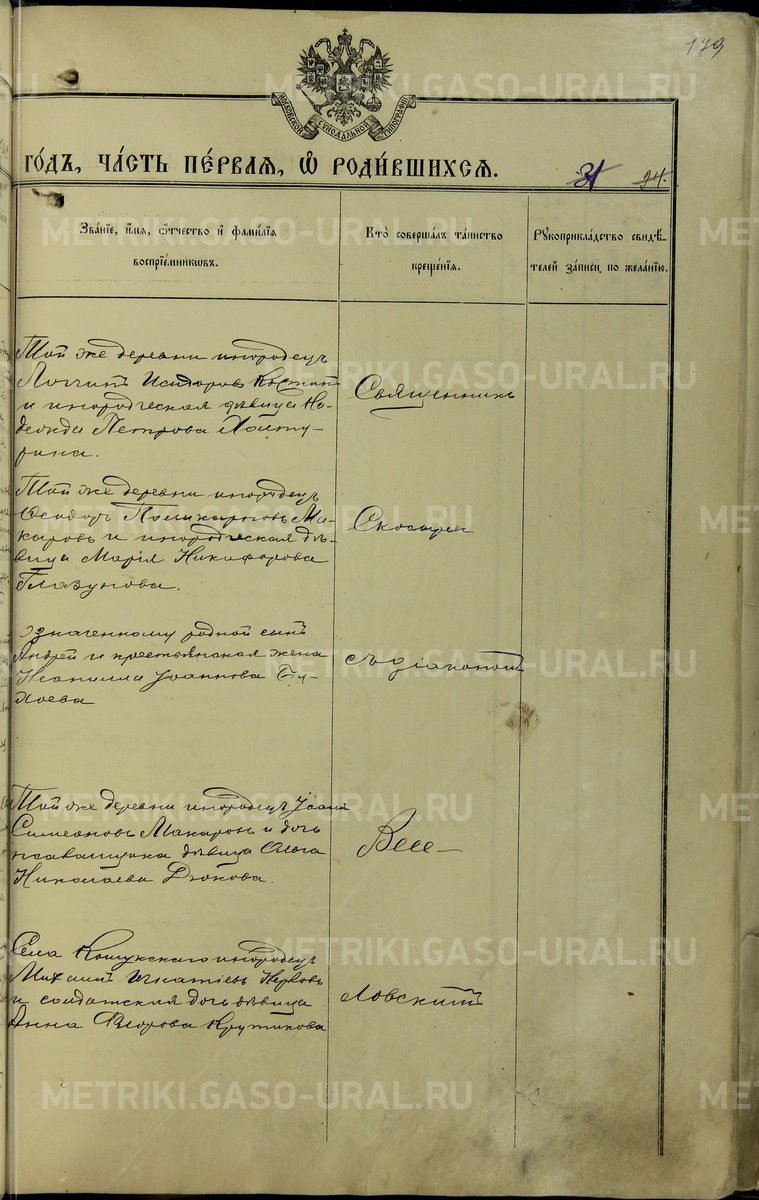 179
МОСКОВСКОЙ СѴНОДАЛЬНОЙ ТИПОГРАФІИ
ГОДЪ, ЧАСТЬ ПЕРВАЯ, Ѡ РОДИВШИХСЯ.
31 24.
Званіе, имя, отчество и фамилія
воспріемниковъ.
Кто совершалъ таинство
крещенія.
Рукоприкладство свидѣ-
телей записи по желанію.
Той же деревни инородецъ
Логгинъ Исидоровъ
и инородческая дѣвица На-
дежда Петрова
Священникъ
Той же деревни инородецъ
Ѳеодоръ Поликарповъ Ма-
каровъ и инородческая дѣ-
вица Марія Никифорова
Глазунова.
означенному родной сынъ
Андрей и крестьянская жена
Неонилла Іоаннова
съ діакономъ
Той же деревни инородецъ Іоаннъ
Симеоновъ Макаровъ и дочь
псаломщика дѣвица Ольга
Николаева
Весе-
Села Кошукскаго инородецъ
Михаилъ Игнатіевъ
и солдатская дочь дѣвица
Анна Крутикова
ловскимъ
METRIKI.GASO-URAL.RU